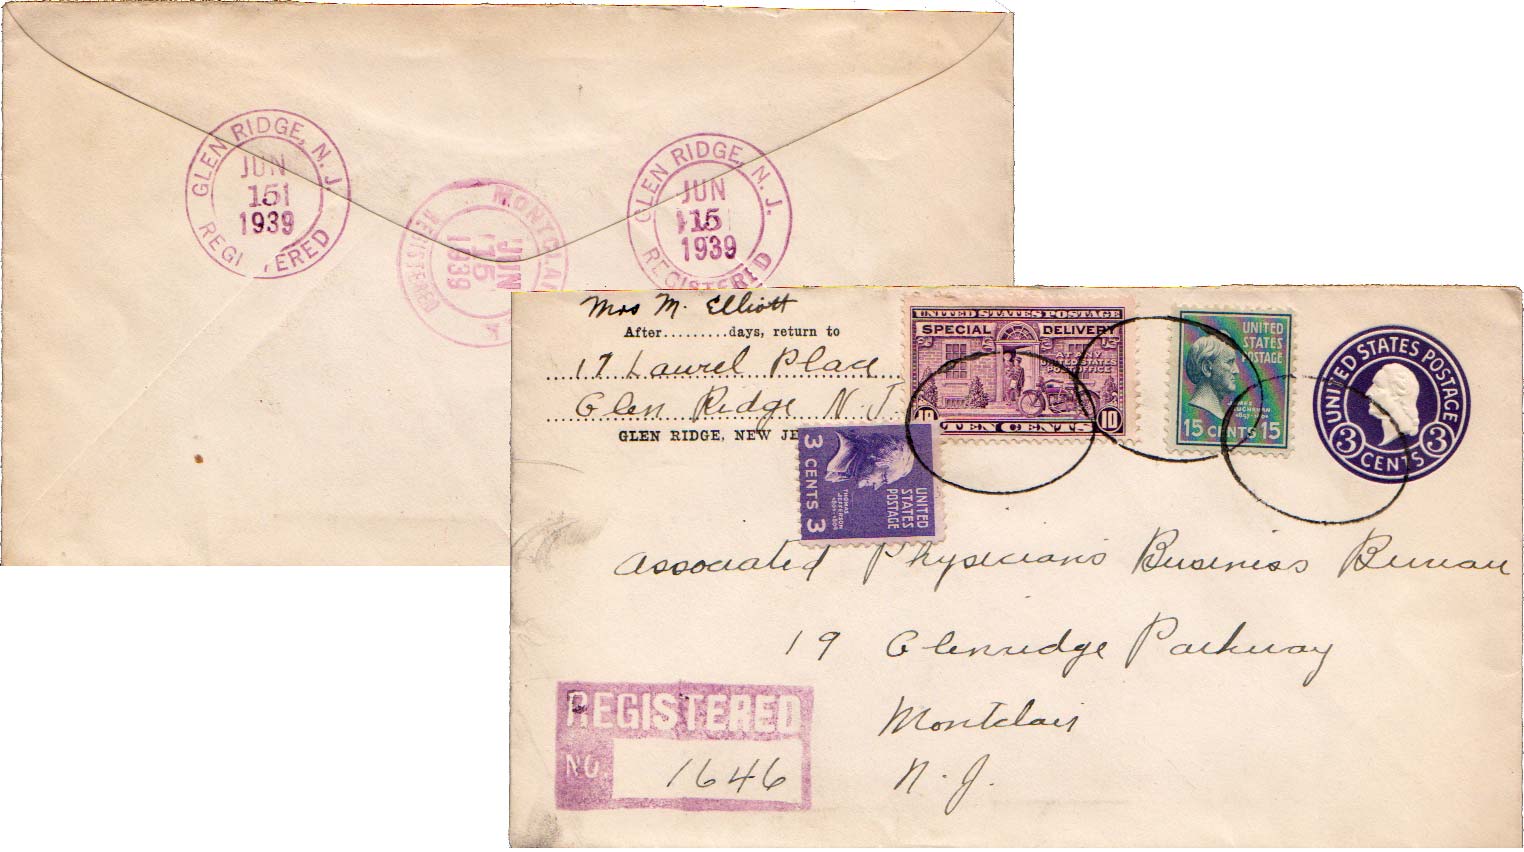 GLEN RIDGE, N. J.
JUN
15
1939
REGISTERED
MONTCLAI
JUN
15
1939
REGISTERED
GLEN RIDGE, N. J.
JUN
15
1939
REGISTERED
Mrs M. Elliott
After.........days, return to
17 Laurel Place
Glen Ridge N.J.
GLEN RIDGE, NEW JE
UNITED STATES POSTAGE
SPECIAL DELIVERY
AT ANY
UNITED STATES
POST OFFICE
10 TEN CENTS 10
UNITED
STATES
POSTAGE
JAMES
BUCHANAN
1857-1861
15 CENTS 15
UNITED STATES POSTAGE
3 CENTS 3
UNITED
STATES
POSTAGE
THOMAS
JEFFERSON
1801-1809
3 CENTS 3
Associated Physicians Business Bureau
19 Glenridge Parkway
Montclair
N. J.
REGISTERED
NO. 1646